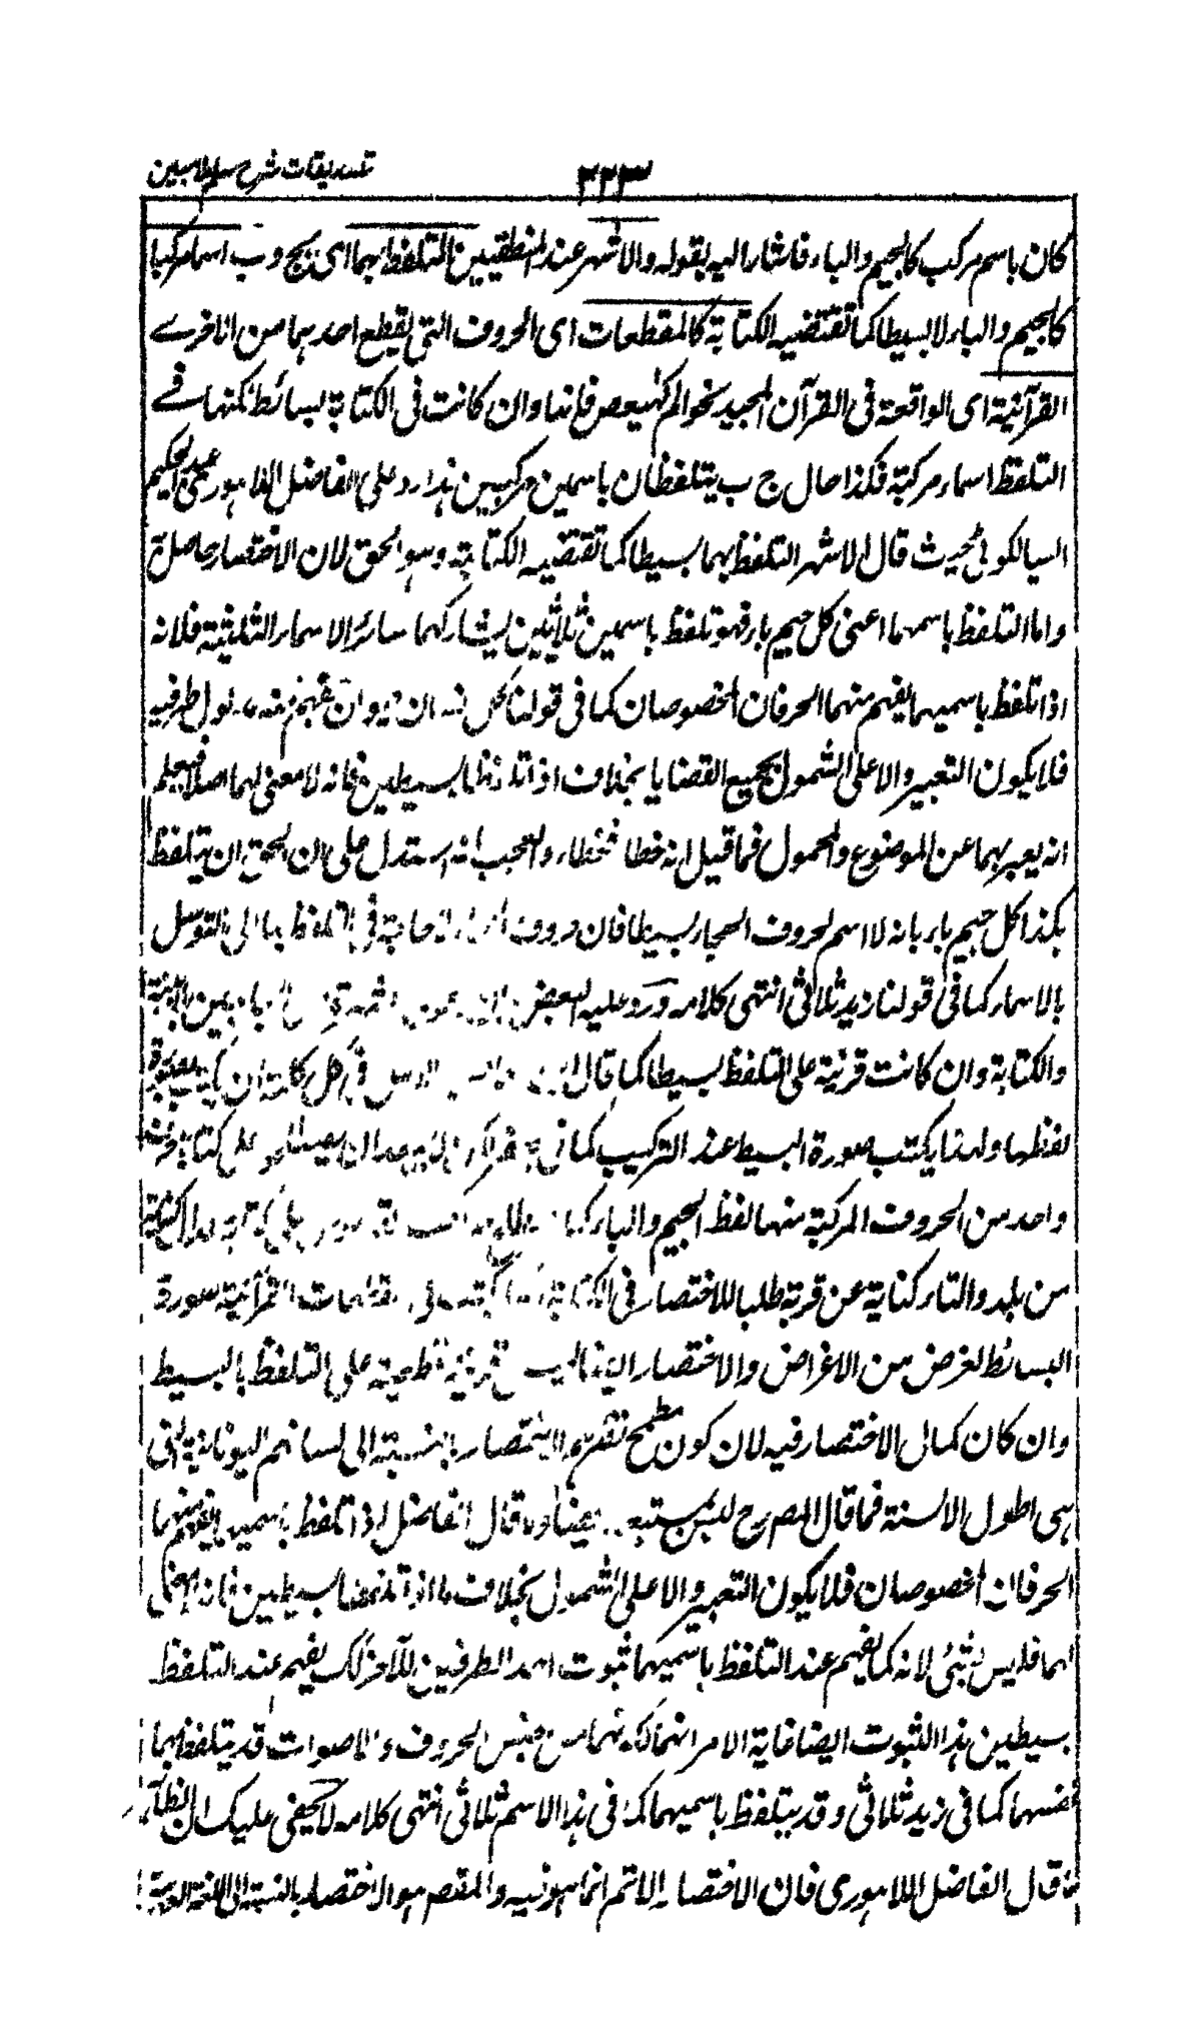 تصديقات شرح سلم ملا مبين
٣٢٣
كان باسم مركب كالجيم والباء فاشار اليه بقوله والاشهر عند المنطقيين التلفظ بهما اى بج وب اسما مركبا
كالجيم والباء لا بسيطا كما تقتضيه الكتابة كالمقطعات اى الحروف التى يقطع احدهما من الاخرے
القرآنية اى الواقعة فى القرآن المجيد نحو الم كهيعص فانها وان كانت فى الكتابة بسائط لكنها فے
التلفظ اسماء مركبة فكذا حال ج ب يتلفظان باسمين مركبين هذا رد على الفاضل اللاهورى عبد الحكيم
السيالكوٹى حيث قال الاشهر التلفظ بهما بسيطا كما تقتضيه الكتابة وهو الحق لان الاختصار حاصل به
واما التلفظ باسمهما اعنى كل جيم باء فهو تلفظ باسمين ثلاثين يشاركهما سائر الاسماء الثلثية فلانه
اذا تلفظ باسميهما يفهم منهما الحرفان المخصوصان كما فى قولنا كل انسان حيوان يفهم منه مدلول طرفيه
فلا يكون التعبير دالا على الشمول لجميع القضايا بخلاف اذا تلفظ بسيطين فانه لا معنى لهما اصلا فيعلم
انه يعبر بهما عن الموضوع والمحمول فما قيل انه خطا فخطاء والعجب انه استدل على ان الحق ان يتلفظ
هكذا كل جيم باء بانه لا اسم لحروف الهجاء بسيطا فان حروف الهجاء لا حاجة فى التلفظ بها الى التوسل
بالاسماء كما فى قولنا زيد ثلاثى انتهى كلامه ورد عليه البعض
والكتابة وان كانت قرينة على التلفظ بسيطا كما قال الاصل فى كل كلمة ان يكتب بصورة
لفظها ولهذا يكتب صورة البسيط عند التركيب كما فى
واحد من الحروف المركبة منها لفظ الجيم والباء كما
من بلد والتاء كناية عن قرية طلبا للاختصار فى الكتابة كما يكتب فى مقطعات القرآنية صورة
البسائط لغرض من الاغراض والاختصار قرينة قطعية على التلفظ بالبسيط
وان كان كمال الاختصار فيه لان كون مطمح نظرهم الاختصار بالنسبة الى لسانهم اليونانية التى
هى اطول الالسنة فما قال المصرح ليس بمستبعد ايضا وما قال الفاضل اذا تلفظ باسميهما يفهم منهما
الحرفان المخصوصان فلا يكون التعبير دالا على الشمول بخلاف ما اذا تلفظ بسيطين فانه لا معنى
لهما فليس بشئ لانه كما يفهم عند التلفظ باسميهما ثبوت احد الطرفين للآخر كك يفهم عند التلفظ
بسيطين هذا الثبوت ايضا غاية الامر انهما لكونهما من جنس الحروف والاصوات قد يتلفظ بهما
انفسهما كما فى زيد ثلاثى وقد يتلفظ باسميهما كما فى هذا الاسم ثلاثى انتهى كلامه لا يخفى عليك ان الظاهر
ما قال الفاضل اللاهورى فان الاختصار الاتم انما هو فيه والمقصود هو الاختصار بالنسبة الى اللغة العربية